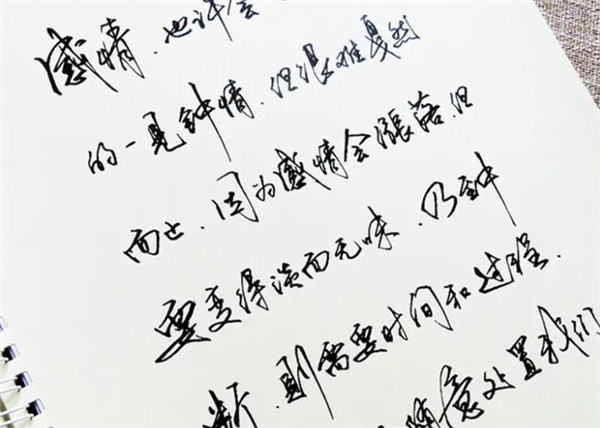 感情，也许会
的一见钟情，但很难戛然
而止，因为感情会涨落，但
要变得淡而无味，乃至中
断，则需要时间和过程．
随意处置我们